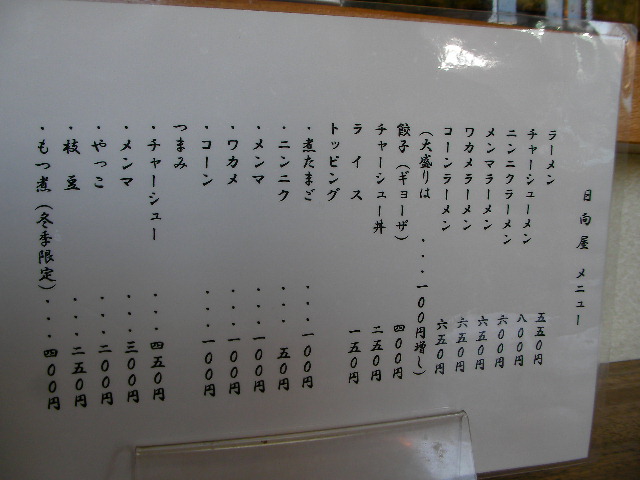 日向屋 メニュー
ラーメン 五五0円
チャーシューメン 八00円
ニンニクラーメン 六00円
メンマラーメン 六五0円
ワカメラーメン 六五0円
コーンラーメン 六五0円
(大盛りは ・・・一00円増し)
餃子(ギョーザ) 四00円
チャーシュー丼 二五0円
ライス 一五0円
トッピング
・煮たまご ・・・一00円
・ニンニク ・・・ 五0円
・メンマ ・・・一00円
・ワカメ ・・・一00円
・コーン ・・・一00円
つまみ
・チャーシュー ・・・四五0円
・メンマ ・・・三00円
・やっこ ・・・二00円
・枝豆 ・・・二五0円
・もつ煮(冬季限定)・・・四00円